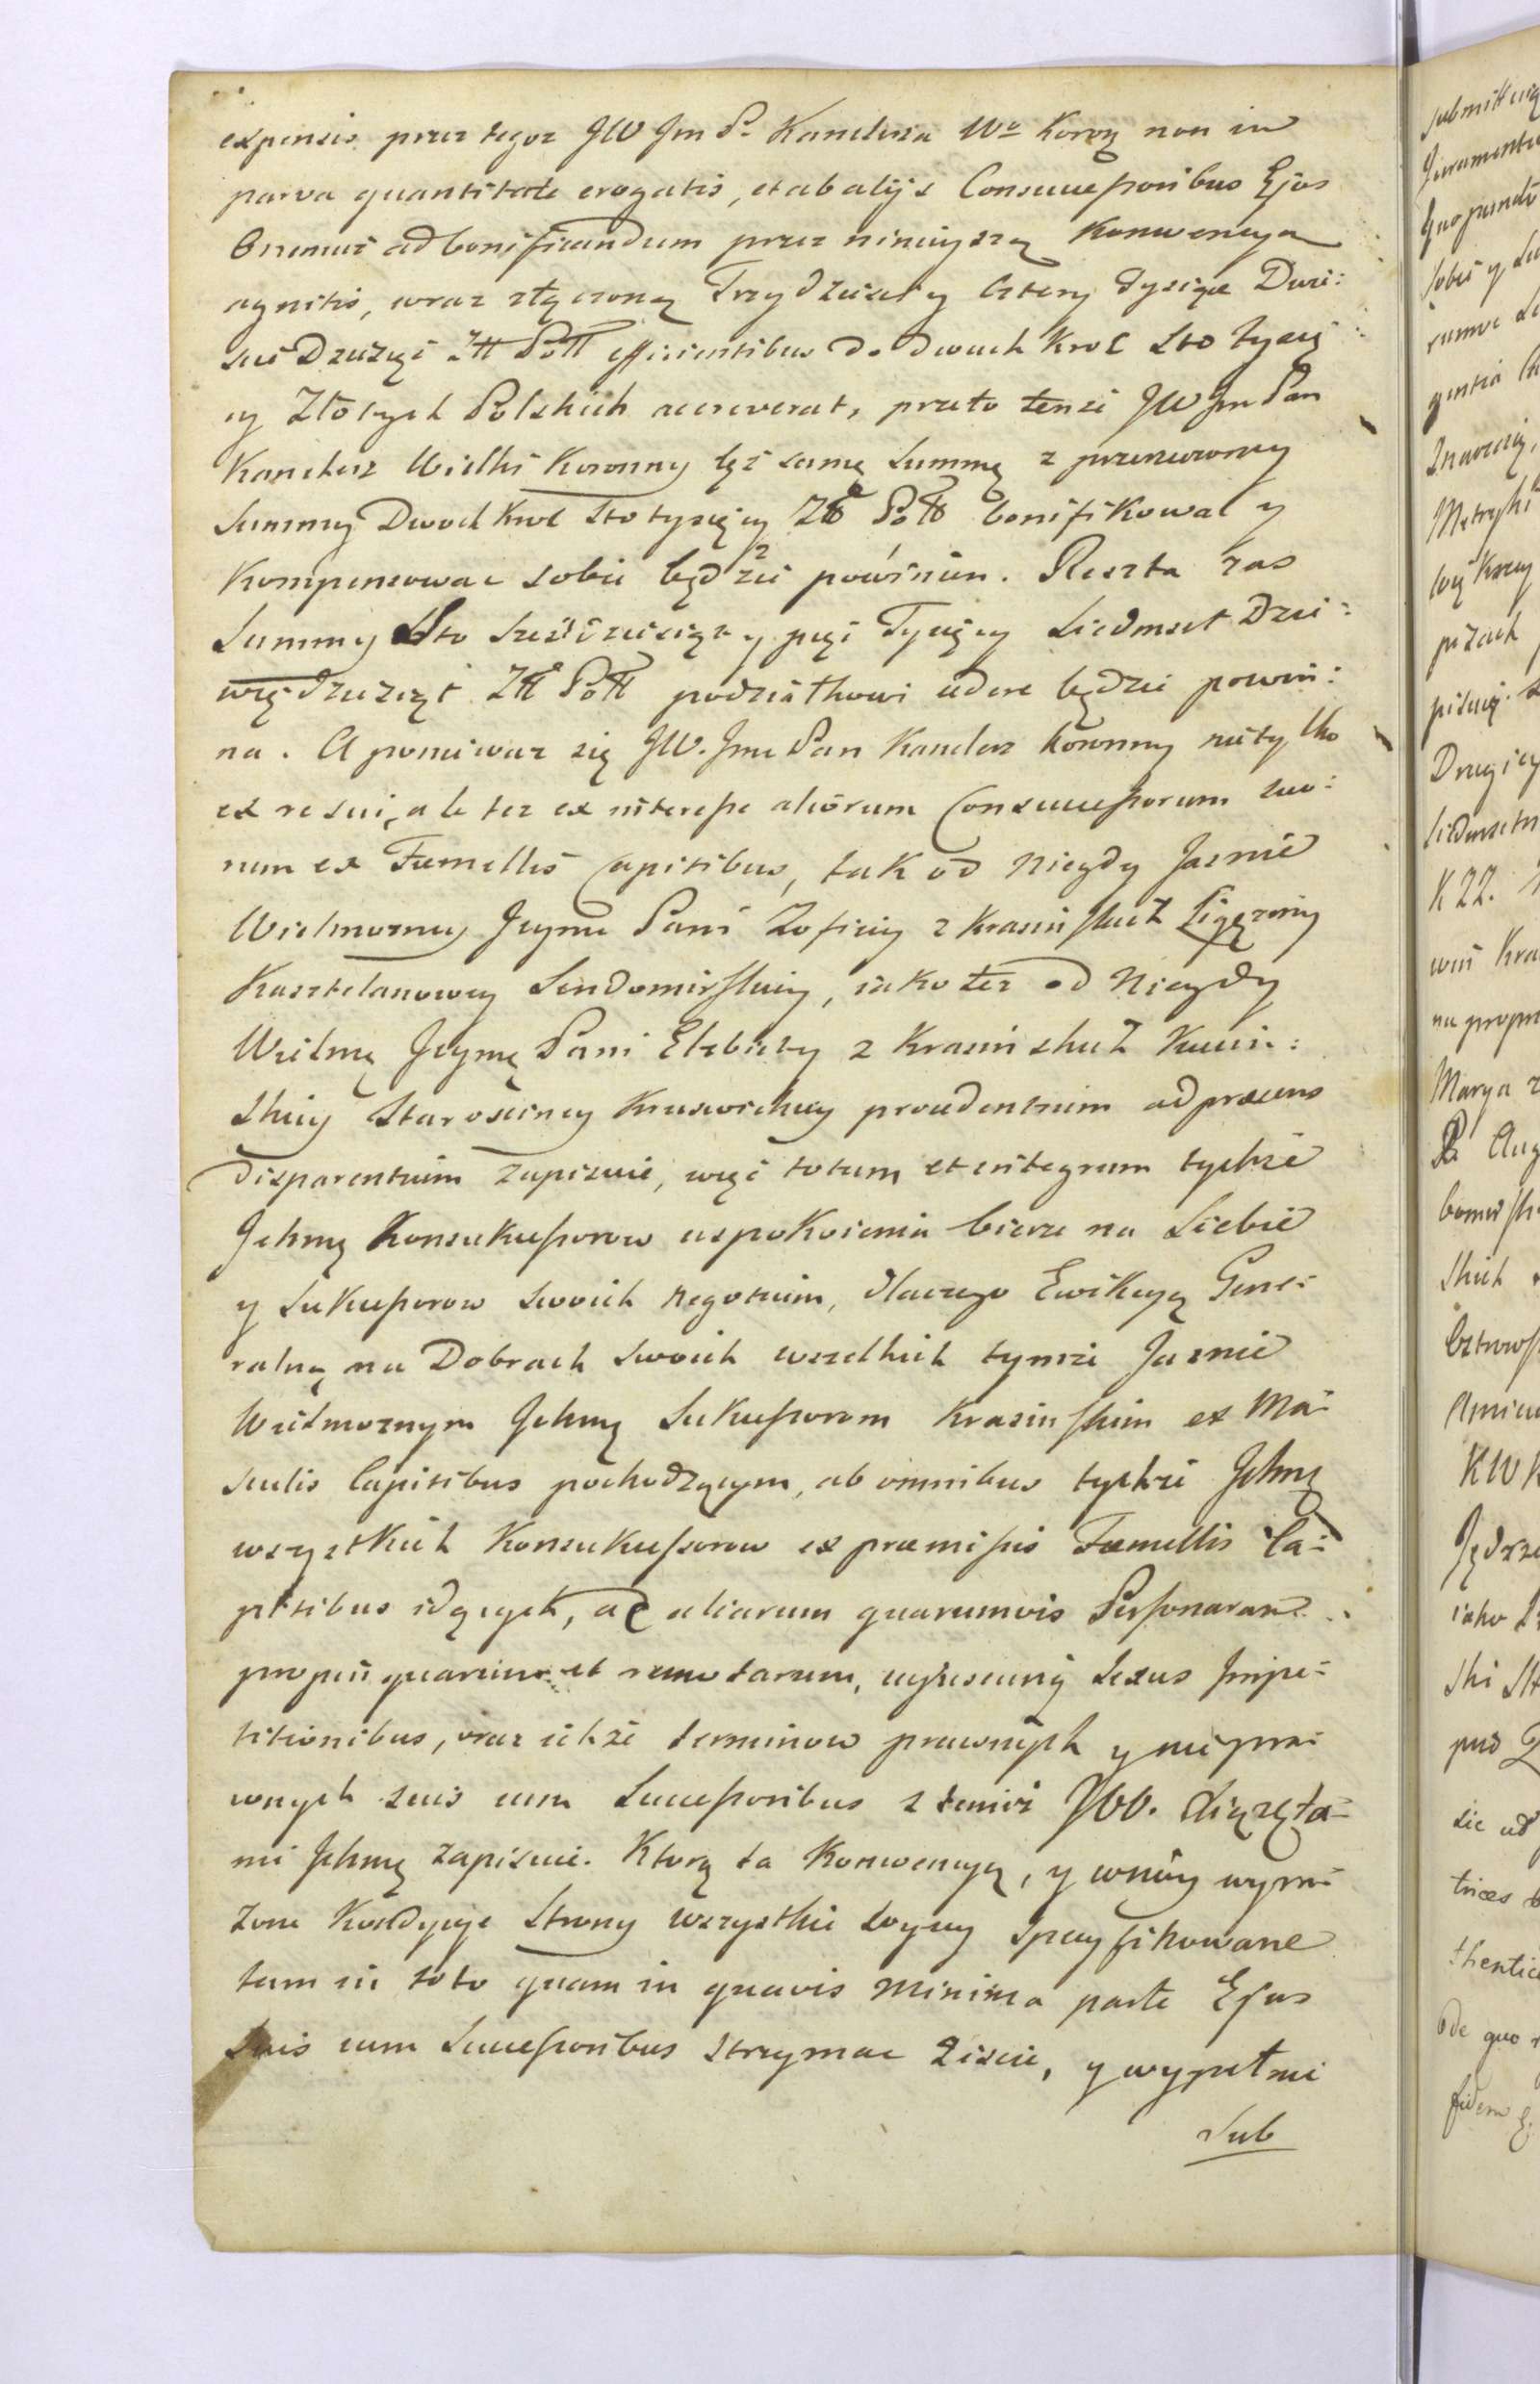 expensis przez tegoz JW Jm P. Kanclerza Wo Korog non in
parva quantitate erogatis, et ab alijs Consuccessoribus Ejus
Oremus ad bonificandum przez ninieyszą Konwencyą
agnitis, wraz złączoną Trzydziesci y Cztery Tysiące Dwie:
scie Dziesięć Złł Pollł efficientibus do dwuch Kroć Sto Tysię
cy Złotych Polskich accreverat, przeto tenże JW Jm Pan
Kanclerz Wielki Koronny tęż samę Summę z przerzeczoney
Summy Dwoch Kroć Sto tysięcy Złł Pollł bonifikować y
Kompensować sobie będzie powinien. Reszta zas
Summy Sto Szesćdziesiąt y pięć Tysięcy Siedmset Dzie:
więdziesiąt Złł Pollł podziałkowi cedere będzie powin:
na. A poniewaz się JW. Jm Pan Kanclerz Koronny nietylko
ex re sui, ale tez ex interesse aliorum Consuccessorum suo:
rum ex Fæmellis Capitibus, tak od Niegdy Jasnie
Wielmozney Jeymci Pani Zofiey z Krasinskich Ligęziny
Kasztelanowey Sendomirskiey, iako tez od Niegdy
Wielmę Jeymę Pani Elzbiety z Krasinskich Kucin:
skiey Starosciney Kruswickiey proudentium ad præsens
disparentium zapisuie, więc totum et integrum tychże
Jchmę Konsukcessorow uspokoienia bierze na Siebie
y Sukcessorow Swoich negotium, dlaczego Ewikcyą Gene:
ralną na Dobrach Swoich wszelkich tymże Jasnie
Wielmoznym Jchmę Sukcessorom Krasinskim ex Ma:
sculis Capitibus pochodzącym, ab omnibus tychże Jchmę
wszystkich Konsukcessorow ex præmissis Fæmellis Ca:
pitibus idących, ac aliarum quarumvis Personarum
propinquarum et remotarum, utriusque Sexus Impe:
titionibus, oraz ichże terminow prawnych y niepra:
wnych suis cum Successoribus z temiż JWW. Xiążęta:
mi Jchmę zapisuie. Ktorą ta Konwencyą, y wniey wyra:
zone Kazdycyje Strony wszystkie Soyusy Specyfikowane
tam in toto quam in quavis minima parte Ejus
Suis cum Successoribus strzymac ziscic, y wypełnic
Sub